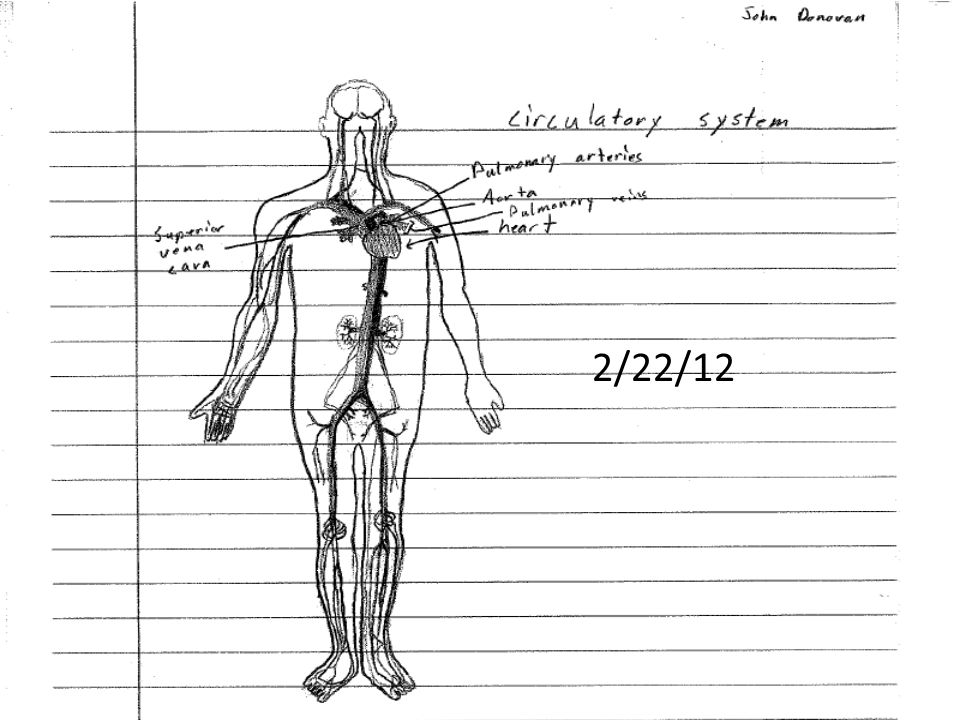 John Donovan
circulatory system
Pulmonary arteries
Aorta
Pulmonary veins
heart
Superior
vena
cava
2/22/12